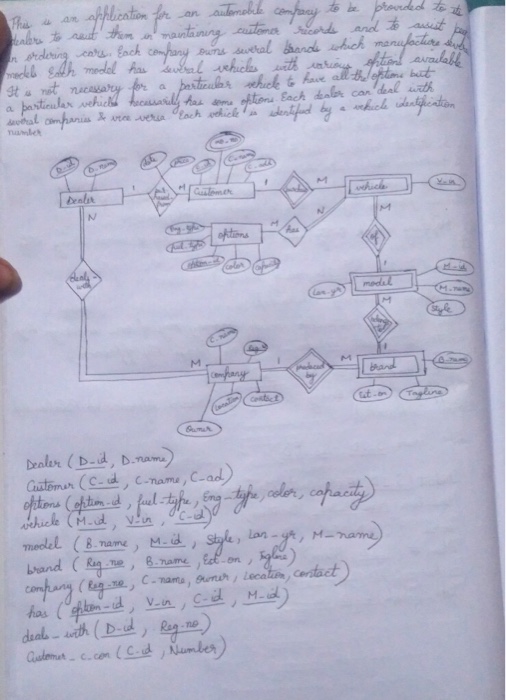 This is an application for an automobile company to be provided to its
dealers to assist them in maintaining customer records and to assist
in ordering cars. Each company owns several brands which manufacture
models Each model has several vehicles with various options available
It is not necessary for a particular vehicle to have all the options but
a particular vehicle necessarily has some options. Each dealer can deal with
several companies & vice versa. Each vehicle is identified by a vehicle identification
number
D-id
D-name
date
C-id
C-name
C-ad
Dealer
1
M
Customer
1
M
vehicle
V-in
N
N
M
Eng-type
fuel-type
options
has
of
option-id
color
capacity
deals-
with
1
M-id
Lan-yr
model
M-name
M
Style
C-name
Reg-no
1
M
company
1
produced
by
M
brand
B-name
Location
contact
Est-on
Tagline
Owner
Dealer (D-id, D-name)
Customer (C-id, C-name, C-ad)
options (option-id, fuel-type, Eng-type, color, capacity)
vehicle (M-id, V-in, C-id)
model (B.name, M-id, Style, Lan-yr, M-name)
brand (Reg.no, B.name, Est-on, Tgline)
company (Reg-no, C-name, owner, Location, contact)
has (option-id, V-in, C-id, M-id)
deals-with (D-id, Reg-no)
Customer_c_con (C-id, Number)